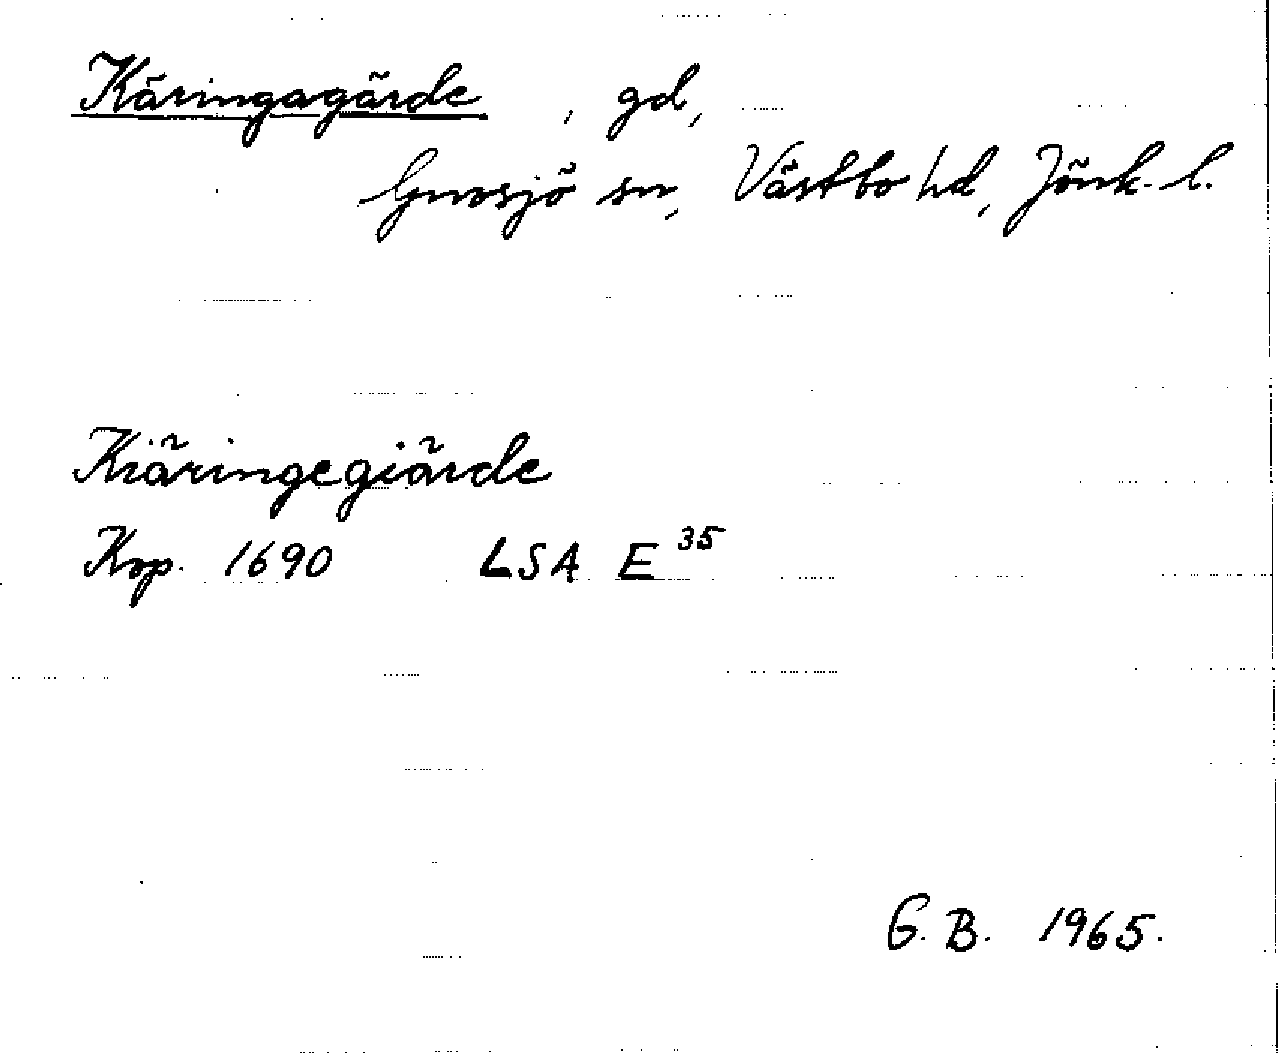 Käringagärde , gd,
Gnosjö sn, Västbo hd, Jönk. l.
Kiäringegiärde
Kop. 1690 LSA E 35
G. B. 1965.